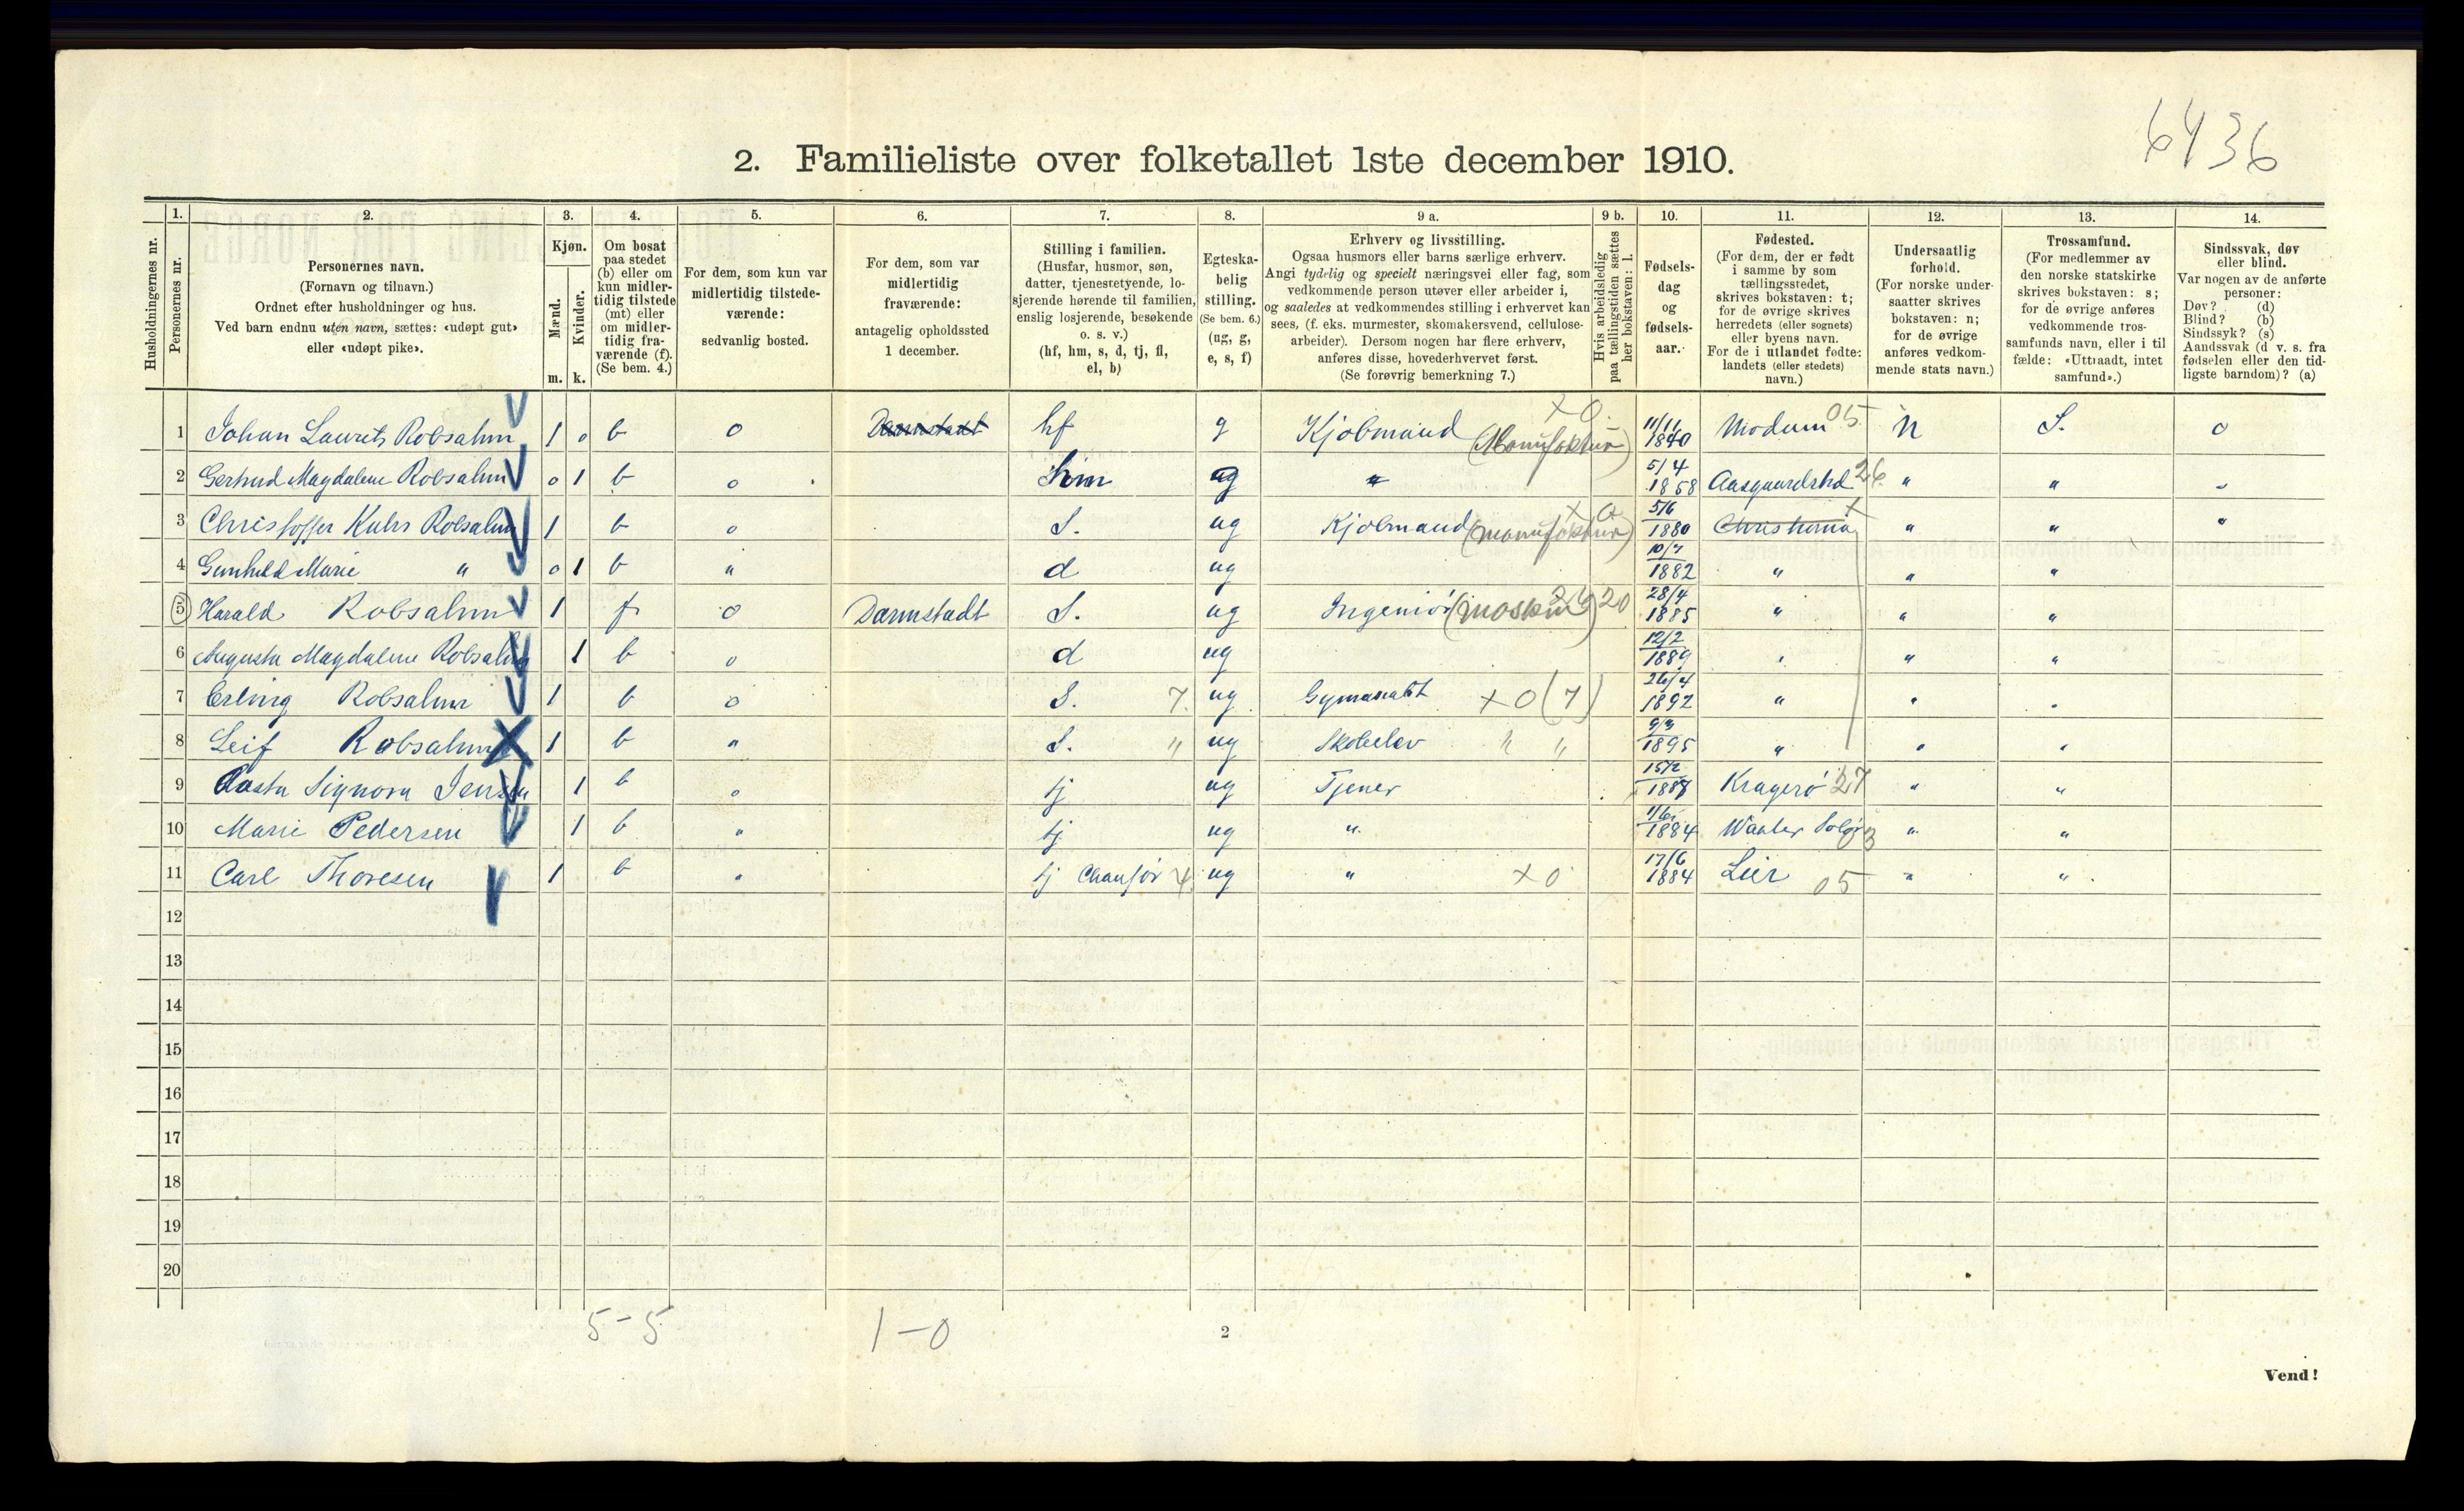 6436
2. Familieliste over folketallet 1ste december 1910.
Husholdningernes nr.
1. Personernes nr.
2. Personernes navn.
(Fornavn og tilnavn.)
Ordnet efter husholdninger og hus.
Ved barn endnu uten navn, sættes: «udøpt gut»
eller «udøpt pike».
3. Kjøn.
Mænd. m.
Kvinder. k.
4. Om bosat
paa stedet
(b) eller om
kun midler-
tidig tilstede
(mt) eller
om midler-
tidig fra-
værende (f).
(Se bem. 4.)
5. For dem, som kun var
midlertidig tilstede-
værende:
sedvanlig bosted.
6. For dem, som var
midlertidig
fraværende:
antagelig opholdssted
1 december.
7. Stilling i familien.
(Husfar, husmor, søn,
datter, tjenestetyende, lo-
sjerende hørende til familien,
enslig losjerende, besøkende
o. s. v.)
(hf, hm, s, d, tj, fl,
el, b)
8. Egteska-
belig
stilling.
(Se bem. 6.)
(ug, g,
e, s, f)
9 a. Erhverv og livsstilling.
Ogsaa husmors eller barns særlige erhverv.
Angi tydelig og specielt næringsvei eller fag, som
vedkommende person utøver eller arbeider i,
og saaledes at vedkommendes stilling i erhvervet kan
sees, (f. eks. murmester, skomakersvend, cellulose-
arbeider). Dersom nogen har flere erhverv,
anføres disse, hovederhvervet først.
(Se forøvrig bemerkning 7.)
9 b. Hvis arbeidsledig
paa tællingstiden sættes
her bokstaven: l.
10. Fødsels-
dag
og
fødsels-
aar.
11. Fødested.
(For dem, der er født
i samme by som
tællingsstedet,
skrives bokstaven: t;
for de øvrige skrives
herredets (eller sognets)
eller byens navn.
For de i utlandet fødte:
landets (eller stedets)
navn.)
12. Undersaatlig
forhold.
(For norske under-
saatter skrives
bokstaven: n;
for de øvrige
anføres vedkom-
mende stats navn.)
13. Trossamfund.
(For medlemmer av
den norske statskirke
skrives bokstaven: s;
for de øvrige anføres
vedkommende tros-
samfunds navn, eller i til
fælde: «Uttraadt, intet
samfund».)
14. Sindssvak, døv
eller blind.
Var nogen av de anførte
personer:
Døv? (d)
Blind? (b)
Sindssyk? (s)
Aandssvak (d. v. s. fra
fødselen eller den tid-
ligste barndom)? (a)
1 Johan Laurits Robsahm 1 0 b 0 Darmstadt hf g Kjøbmand (Manufaktur) x 0. 11/11 1840 Modum 05. n S. o
2 Gertrud Magdalene Robsahm 0 1 b o hm g " 5/4 1858 Aasgaardstrd 26. " " "
3 Christoffer Kuhrs Robsahm 1 b o S. ug Kjøbmand (manufaktur) 5/6 1880 Christiania x " " "
4 Gunhild Marie " 0 1 b " d ug 10/7 1882 " " "
5 Harald Robsahm 1 f o Darmstadt S. ug Ingeniør (maskin) 20 28/4 1885 " " "
6 Augusta Magdalene Robsahm 1 b o d ug 12/2 1889 " " "
7 Erling Robsahm 1 b o S. 7. ug Gymnasiast x 0 (7) 26/4 1892 " " "
8 Leif Robsahm 1 b " S. " ug Skoleelev " " 9/3 1895 " " "
9 Aasta Signora Jensen 1 b o tj ug Tjener 15/2 1887 Kragerø 27 " "
10 Marie Pedersen 1 b " tj ug " 1884 Vaaler Solør " "
11 Carl Thoresen 1 b " tj Chaufør 4. ug " x 0 17/6 1884 Lier 05 " "
12
13
14
15
16
17
18
19
20
5-5
1-0
2
Vend!